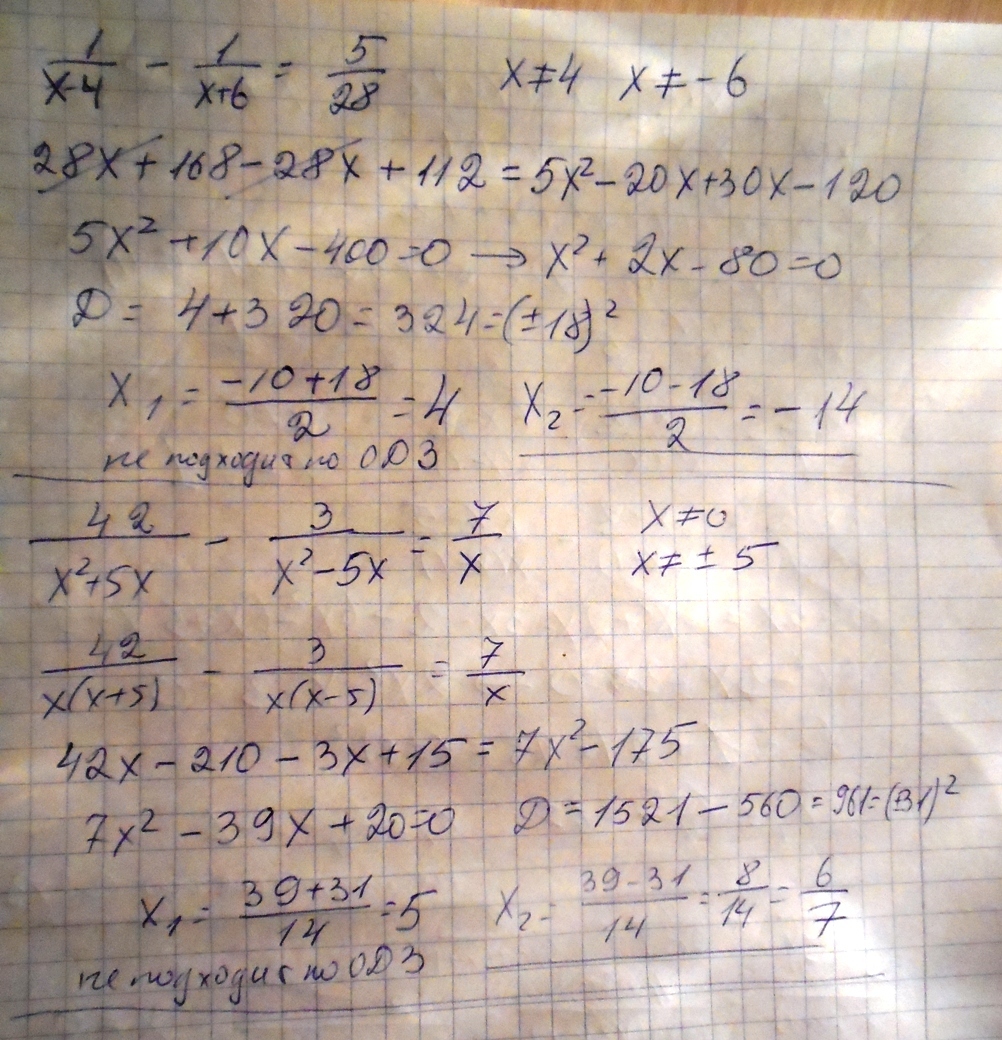 1/(x-4) - 1/(x+6) = 5/28 x≠4 x≠-6
28x+168-28x+112=5x²-20x+30x-120
5x²+10x-400=0 → x²+2x-80=0
Д= 4+320=324=(±18)²
x₁=(-10+18)/2=4 x₂=(-10-18)/2=-14
не подходит по ОДЗ
42/(x²+5x) - 3/(x²-5x) = 7/x x≠0
x≠±5
42/(x(x+5)) - 3/(x(x-5)) = 7/x
42x-210-3x+15=7x²-175
7x²-39x+20=0 Д=1521-560=961=(±31)²
x₁=(39+31)/14=5 x₂=(39-31)/14=8/14=6/7
не подходит по ОДЗ